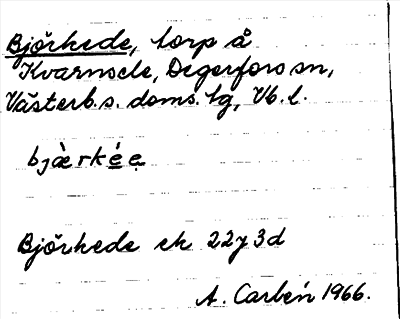 Björkede, torp å
Kvarnsele, Degerfors sn,
Västerb. s. doms. tg, Vb. l.
bjæ̀rkée̤
Björkede ek 22y3d
A. Carbén 1966.